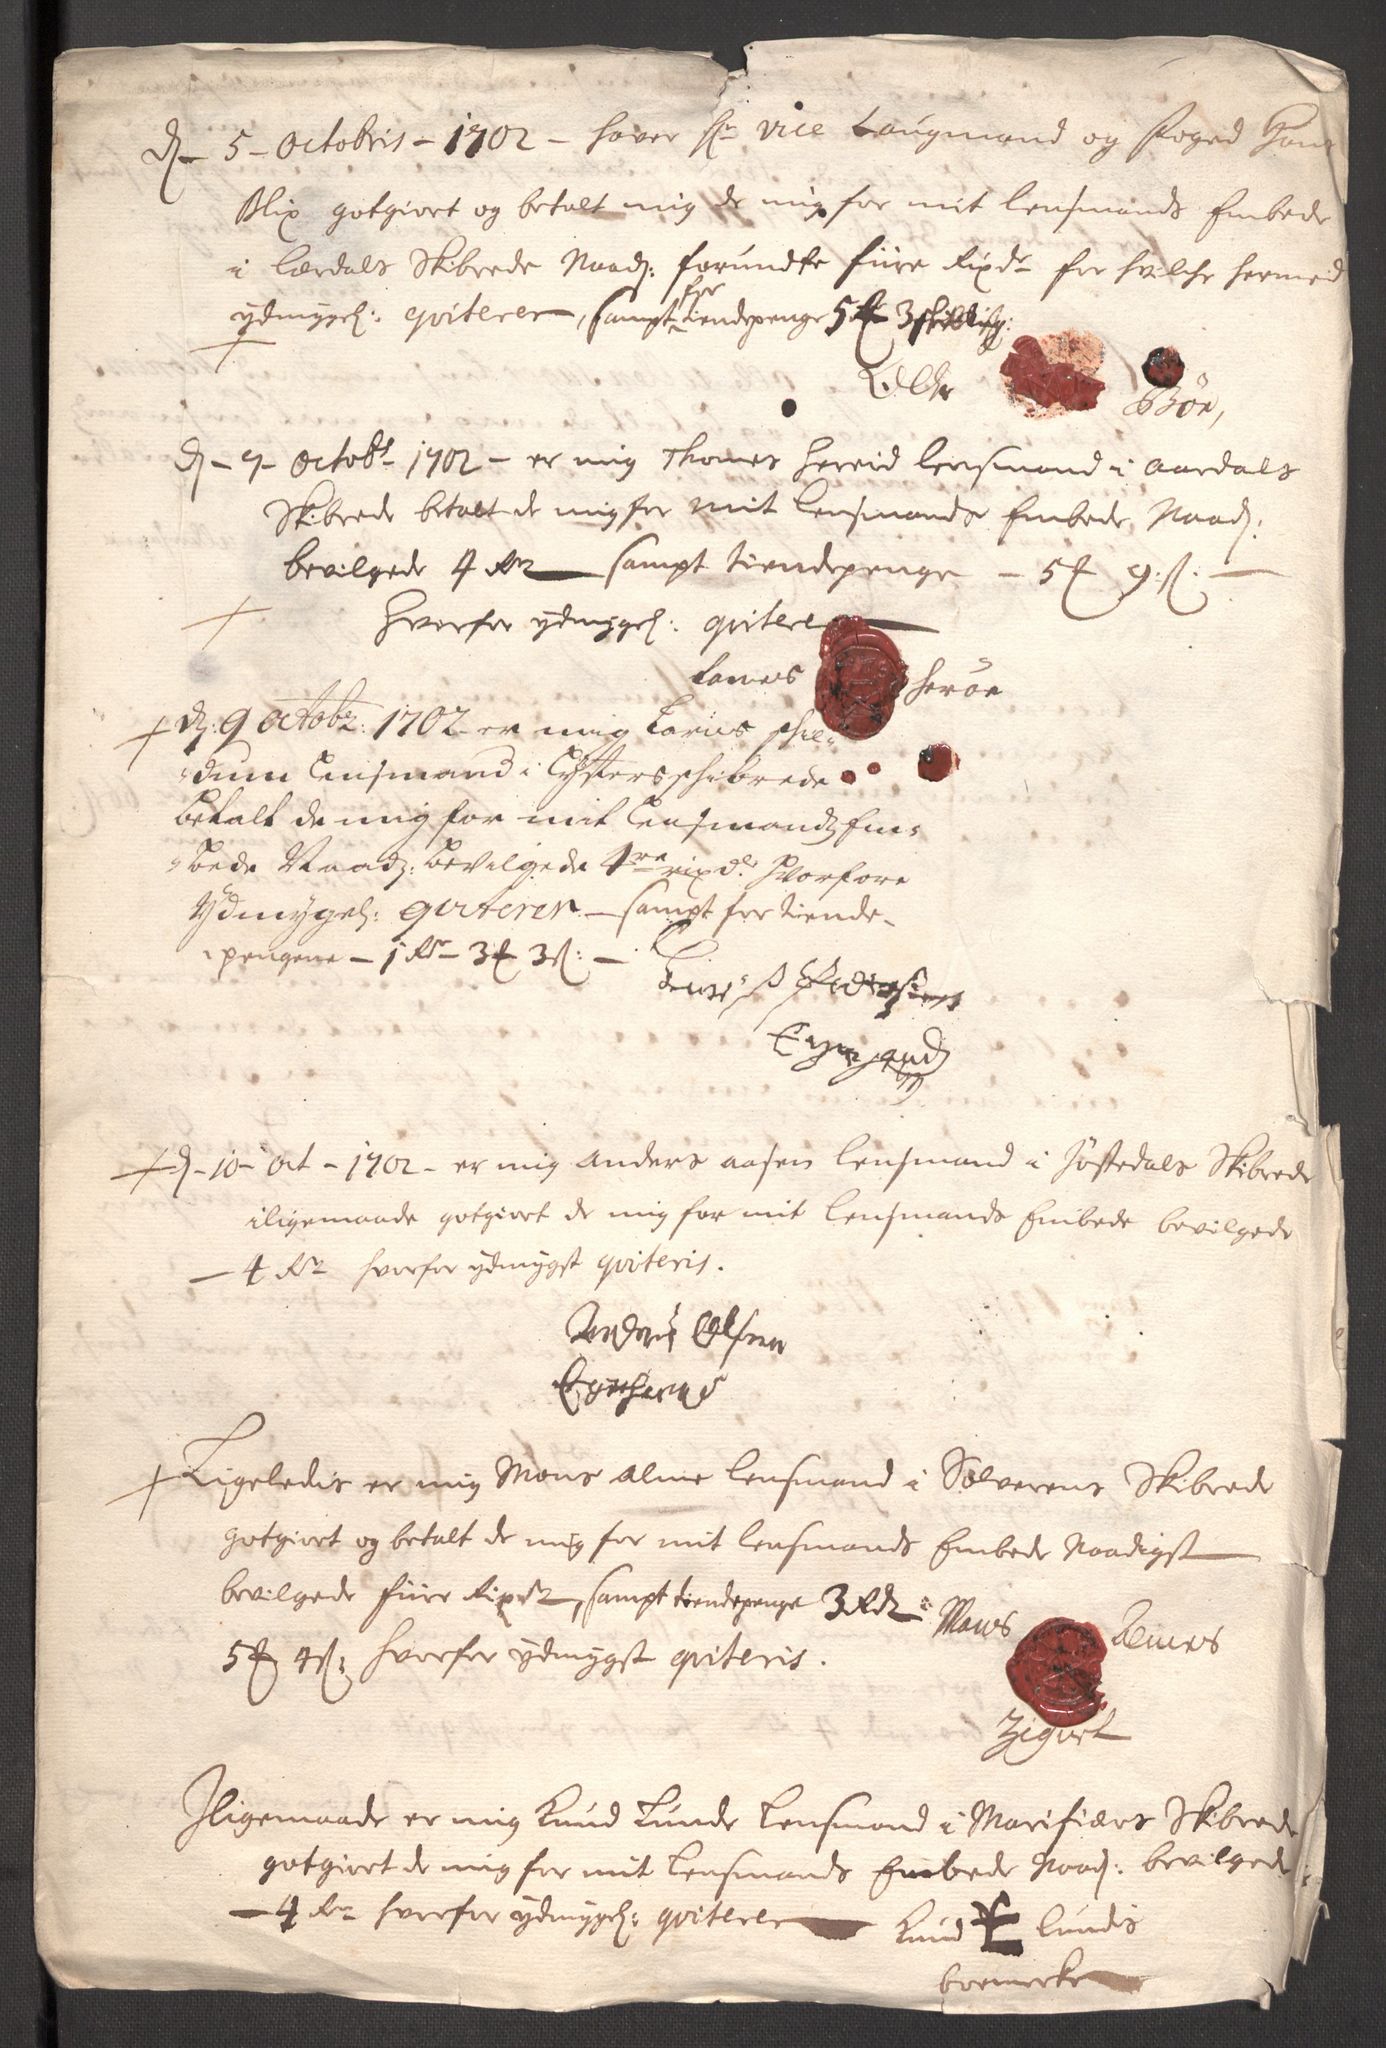 d. 5 Octobris 1702 – haver Hr Vice Laugmand og foged Hans
Blix gotgiort og betalt mig de mig for mit lensmands Embede
i Lærdals Skibrede Naad: forundte fiire Rixdr for hvilche hermed
ydmygel: qviterer, sampt for tiendepenge 5 3 skilling:
Böe,
d – 9 – Octobr 1702 – er mig Thomes Hereid lensmand i Aardals
Skibrede betalt de mig for mit lensmands Embede Naad:
bevilgede 4 Rdr sampt tiendepenge – 5 9 s: –
hvorfor ydmygel: qviterer
heröe
d: 9 Octobr: 1702 er mig Larus
dum Lensmand i Lysters schibrede
betalt de mig for mit Lensmandz Em-
bede Naad: bevilgede 4re rixdr hvorfore
ydmygel: qviterer – sampt for tiende-
pengene – 1 Rdr – 3 3 s: –
Pedersen
d – 10 – Oct – 1702 – er mig Anders Aasen lensmand i Jöstedals Skibrede
iligemaade gotgiort de mig for mit lensmands Embede bevilgede
– 4 Rdr hvorfor ydmygst qviteris.
Anders Olsen
Ligeledis er mig Mons Alme lensmand i Solverens Skibrede
gotgiort og betalt de mig for mit lensmands Embede Naadigst
bevilgede fiire Rixdr, sampt tiendepenge 3 Rdr Mons
5 4 s: hvorfor ydmygst qviteris.
Iligemaade er mig Knud Lunde Lensmand i Marifiærs Skibrede
gotgiort de mig for mit Lensmands Embede Naad: bevilgede
– 4 Rdr hvorfor ydmygel: qviterer Knud Lundis
boemerke